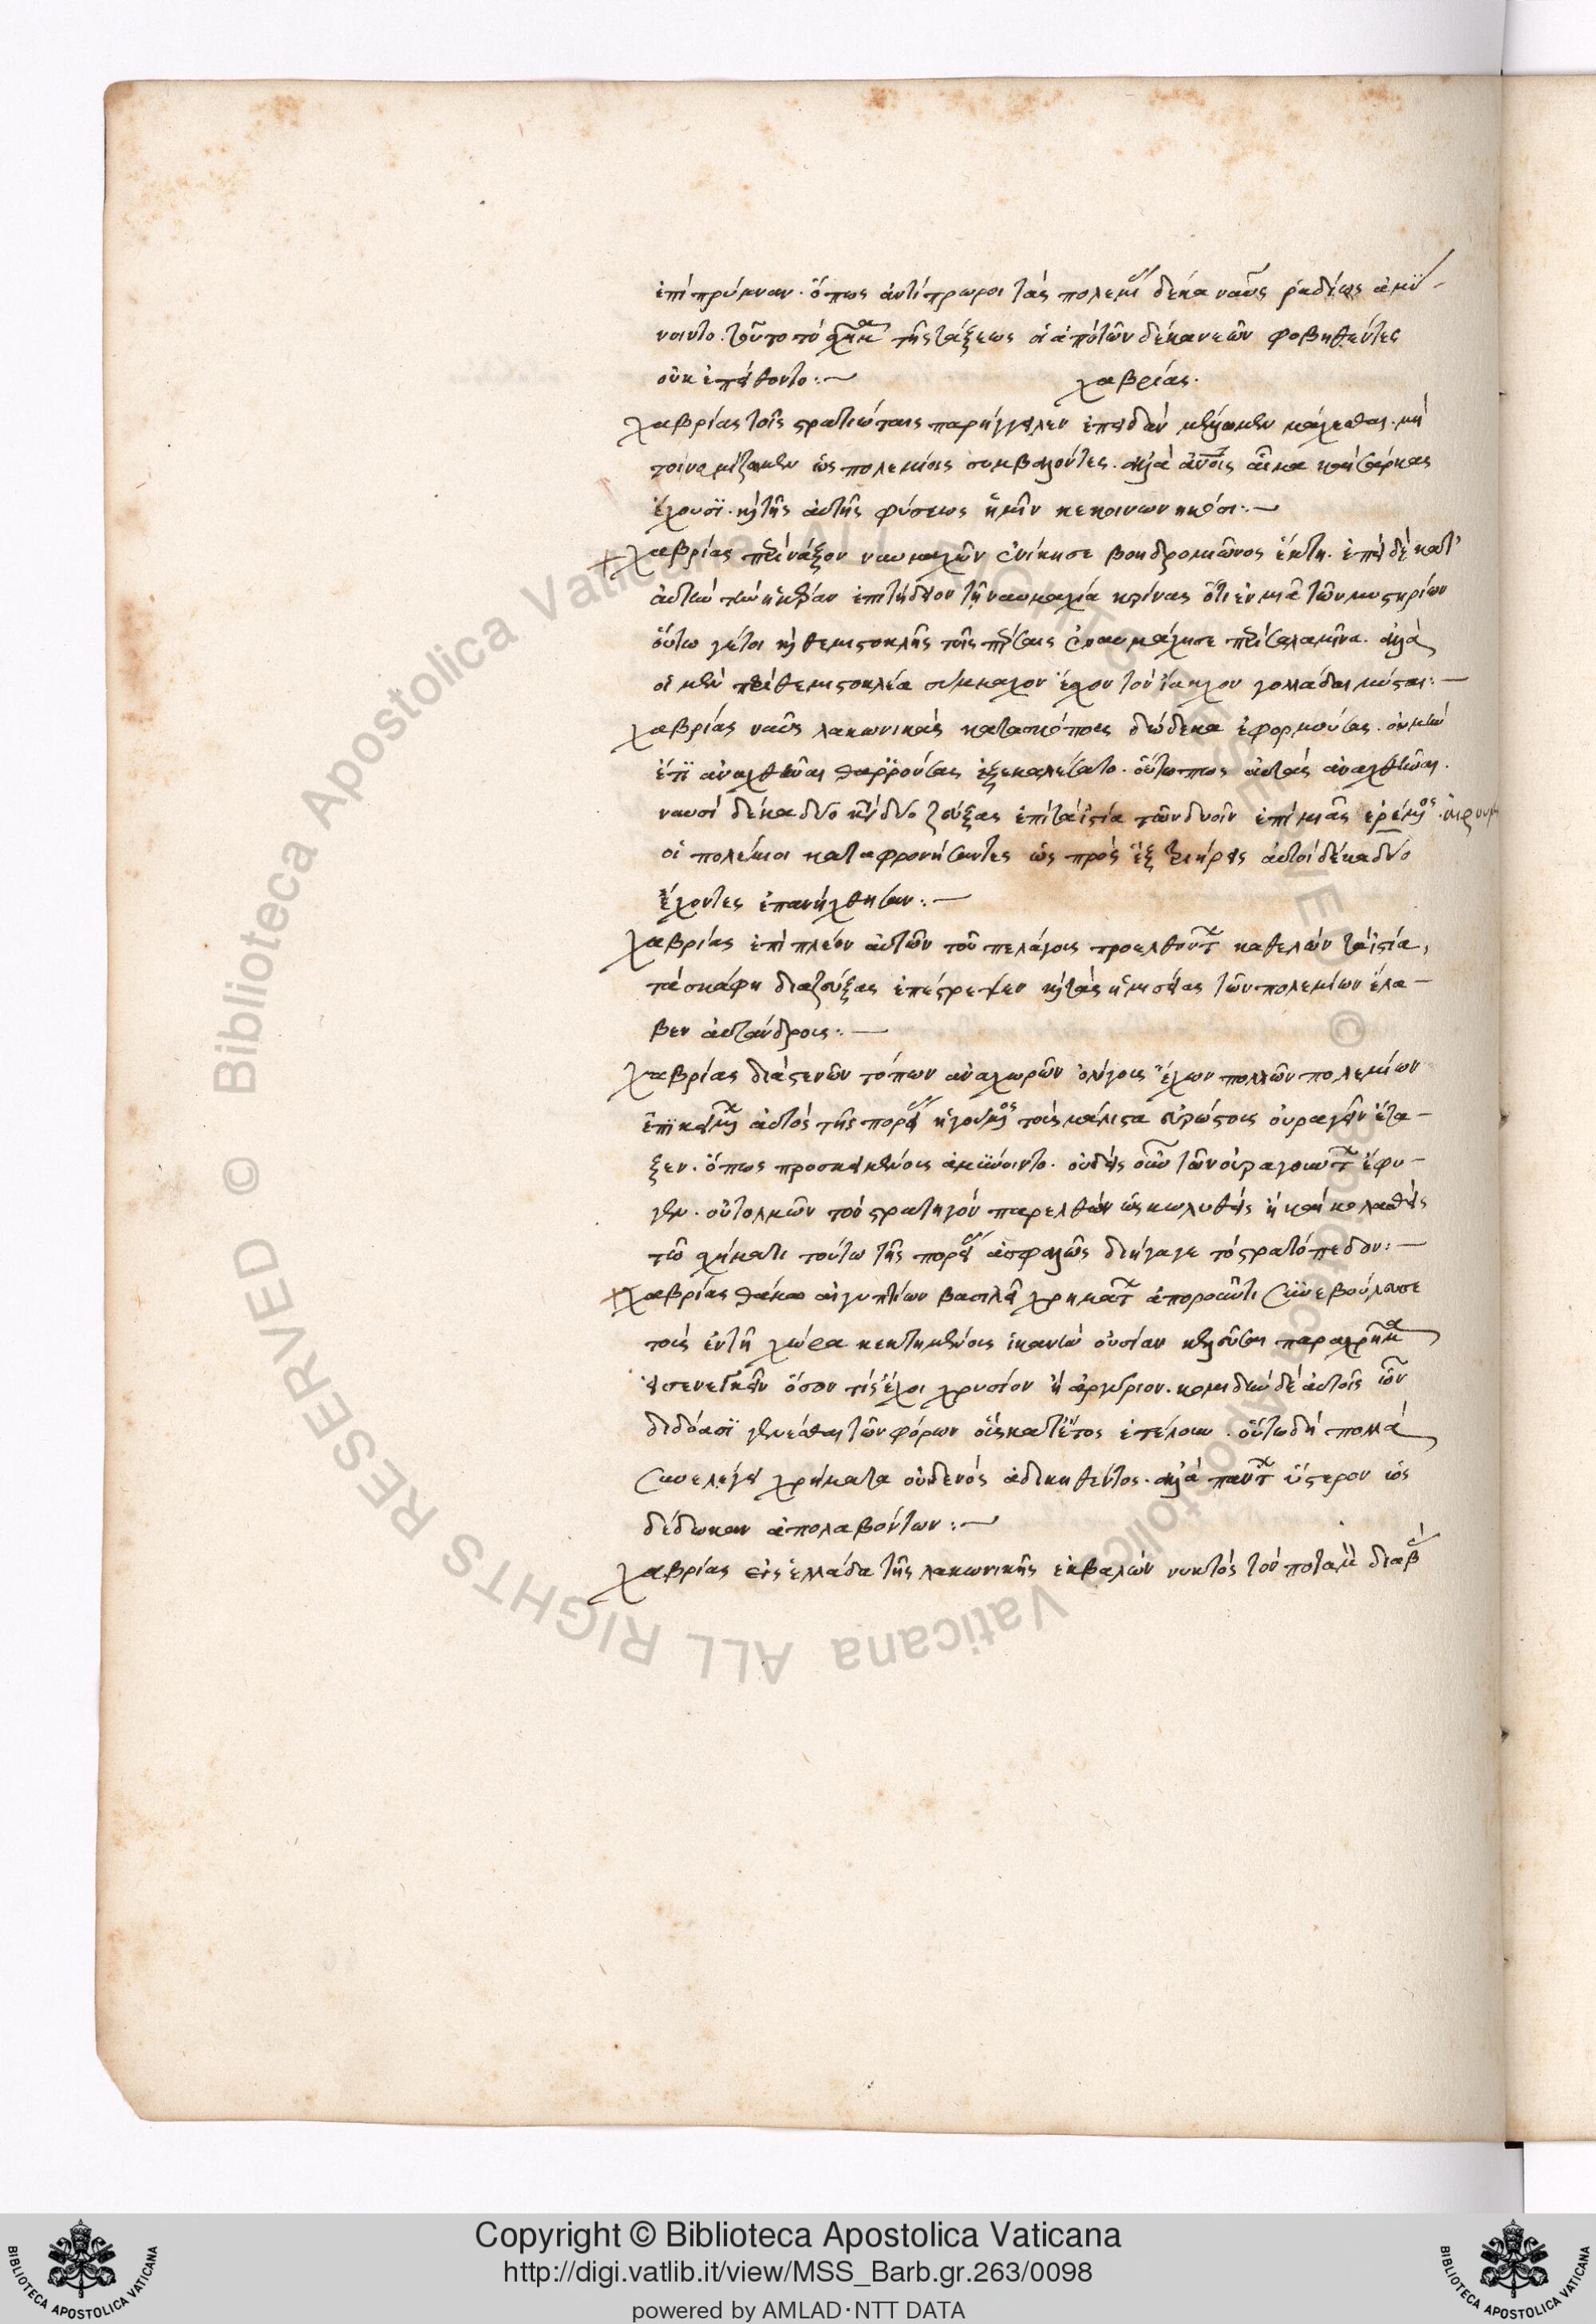 ἐπὶ πρύμναν. ὅπως ἀντίπρωροι τὰς πολεμίας δέκα ναῦς ῥαδίως ἀμύ-
νοιντο. τοῦτο τὸ σχῆμα τῆς τάξεως οἱ ἀπὸ τῶν δέκα νεῶν φοβηθέντες
οὐκ ἐπείθοντο:—
χαβρίας.
χαβρίας τοῖς στρατιώταις παρήγγελλεν ἐπειδὰν μέλλωμεν μάχεσθαι. μή
τοι νομίζωμεν ὡς πολεμίοις συμβαλοῦντες. ἀλλὰ ἀνοις αἷμα καὶ σάρκας
ἔχουσϊ. καὶ τῆς αὐτῆς φύσεως ἡμῖν κεκοινωνηκόσι:—
χαβρίας περὶ νάξον ναυμαχῶν ἐνίκησε βοηδρομιῶνος ἕκτη. ἐπεὶ δὲ κατ'
αὐτὴν τὴν ἡμέραν ἐπιτήδειον τῆ ναυμαχία κρίνας ὅτι ἐν μιᾶ τῶν μυστηρίων
οὕτω γέτοι καὶ θεμιστοκλῆς τοῖς πέρσαις ἐναυμάχησε περὶ σαλαμῖνα. ἀλλὰ
οἱ μὲν περὶ θεμιστοκλέα σύμμαχον ἔσχον τὸν ἴακχον
χαβρίας ναῦς λακωνικὰς κατασκόπους δώδεκα ἐφορμούσας. οὐ μὴν
ἔτϊ ἀναχθῆναι θαῤῥούσας ἐξεκαλέσατο. οὕτωπως αὐτὰς ἀναχθῆναι.
ναυσὶ δέκα δύο κατὰ δύο ζεύξας ἐπὶ τὰ ἱστία τῶν δυοῖν ἐπὶ μιᾶς
οἱ πολέμιοι καταφρονήσαντες ὡς πρὸς ἓξ τριήρεις αὐτοὶ δέκα δύο
ἔχοντες ἐπανήχθησαν:—
χαβρίας ἐπὶ πλέον αὐτῶν τοῦ πελάγους προελθόντων καθελὼν τὰ ἱστία,
τὰ σκάφη διαζεύξας ἐπέστρεψεν καὶ τὰς ἡμισείας τῶν πολεμίων ἔλα-
βεν αὐτάνδρους:—
χαβρίας διὰ στενῶν τόπων ἀναχωρῶν ὀλίγους ἔχων πολλῶν πολεμίων
ἐπϊκειμένων αὐτὸς τῆς πορείας ἡγούμενος τοὺς μάλιστα εὐρώστους οὐραγεῖν ἔτα-
ξεν. ὅπως προσκειμένους ἀμύνοιντο. οὐδεὶς οὖν τῶν οὐραγούντων ἔφυ-
γεν. οὐ τολμῶν τὸν στρατηγὸν παρελθὼν ὡς κωλυθεὶς ἢ καὶ κολασθεὶς
τῶ σχήματι τούτω τῆς πορείας ἀσφαλῶς διήγαγε τὸ στρατόπεδον:—
χαβρίας θάκω αἰγυπτίων βασιλεῖ χρημάτων ἀποροῦντι συνεβούλευσε
τοὺς ἐν τῆ χώρα κεκτημένους ἱκανὴν οὐσίαν κελεῦσαι παραχρῆμα
εἰσενεγκεῖν ὅσον τίς ἔχοι χρυσίον ἢ ἀργύριον. κομιδὴν δὲ αὐτοῖς
διδόασϊ γενέσθαι τῶν φόρων οἷς κατ' ἔτος ἐτέλουν. οὕτω δὴ πολλὰ
συνελέγει χρήματα οὐδενὸς ἀδικηθέντος. ἀλλὰ πάντων ὕστερον
δέδωκαν ἀπολαβόντων:—
χαβρίας εἰς ἑλλάδα τῆς λακωνικῆς ἐκβαλὼν νυκτὸς τὸν ποταμὸν διαβ
© Biblioteca Apostolica Vaticana ALL RIGHTS RESERVED © Biblioteca Apostolica Vaticana ALL RIGHTS RESERVED
Copyright © Biblioteca Apostolica Vaticana
http://digi.vatlib.it/view/MSS_Barb.gr.263/0098
powered by AMLAD·NTT DATA
BIBLIOTECA APOSTOLICA VATICANA
BIBLIOTECA APOSTOLICA VATICANA